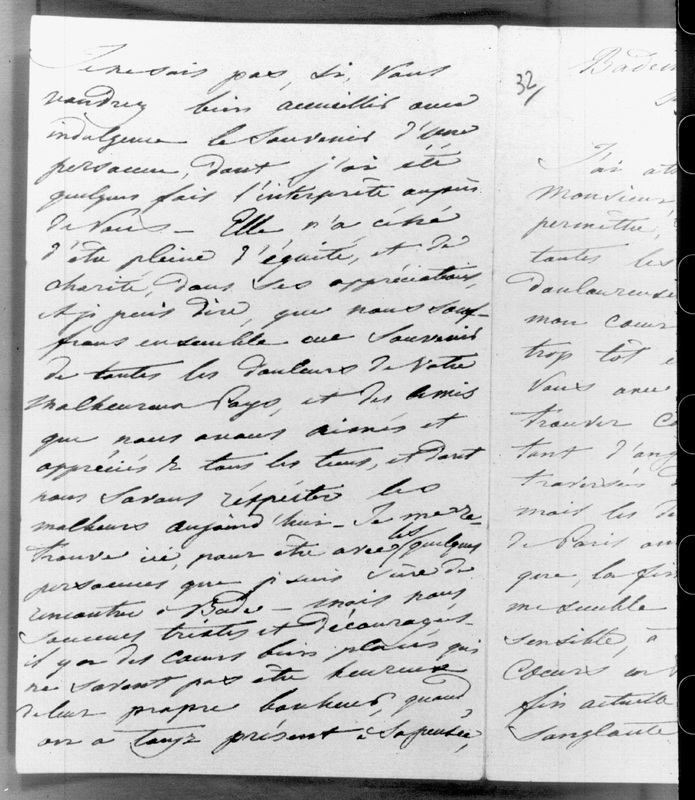 Je ne sais pas, si, Vous
voudrez bien accueillir avec
indulgence le Souvenir d'une
personne, dont j'ai été
quelques fois l'interprête auprès
de Vous - Elle n'a cessé
d'être pleine d'équité, et de
charité, dans ses appréciations,
et je puis dire, que nous souf-
frons ensemble au Souvenir
de toutes les douleurs de Votre
malheureux Pays, et des Amis
que nous avons aimés et
appréciés de tous les tems, et dont
nous savons réspécter les
malheurs aujourd'hui - Je me re-
trouve ici, pour être avec les quelques
personnes que je suis sûre de
rencontrer à Bade - mais nous
sommes tristes et découragés -
il y a des cœurs bien placés qui
ne savent pas être heureux
de leur propre bonheur, quand
on a toujs présent à sa pensée,
32/
Baden
J'ai
Monsieur,
permettre,
toutes les
douloureuse
mon cœur
trop tôt
Vous avec
trouver
tant d'ang
traversés
mais les
de Paris
que, la fin
me semble
sensible, à
Cœurs
fin actuelle
Sanglante